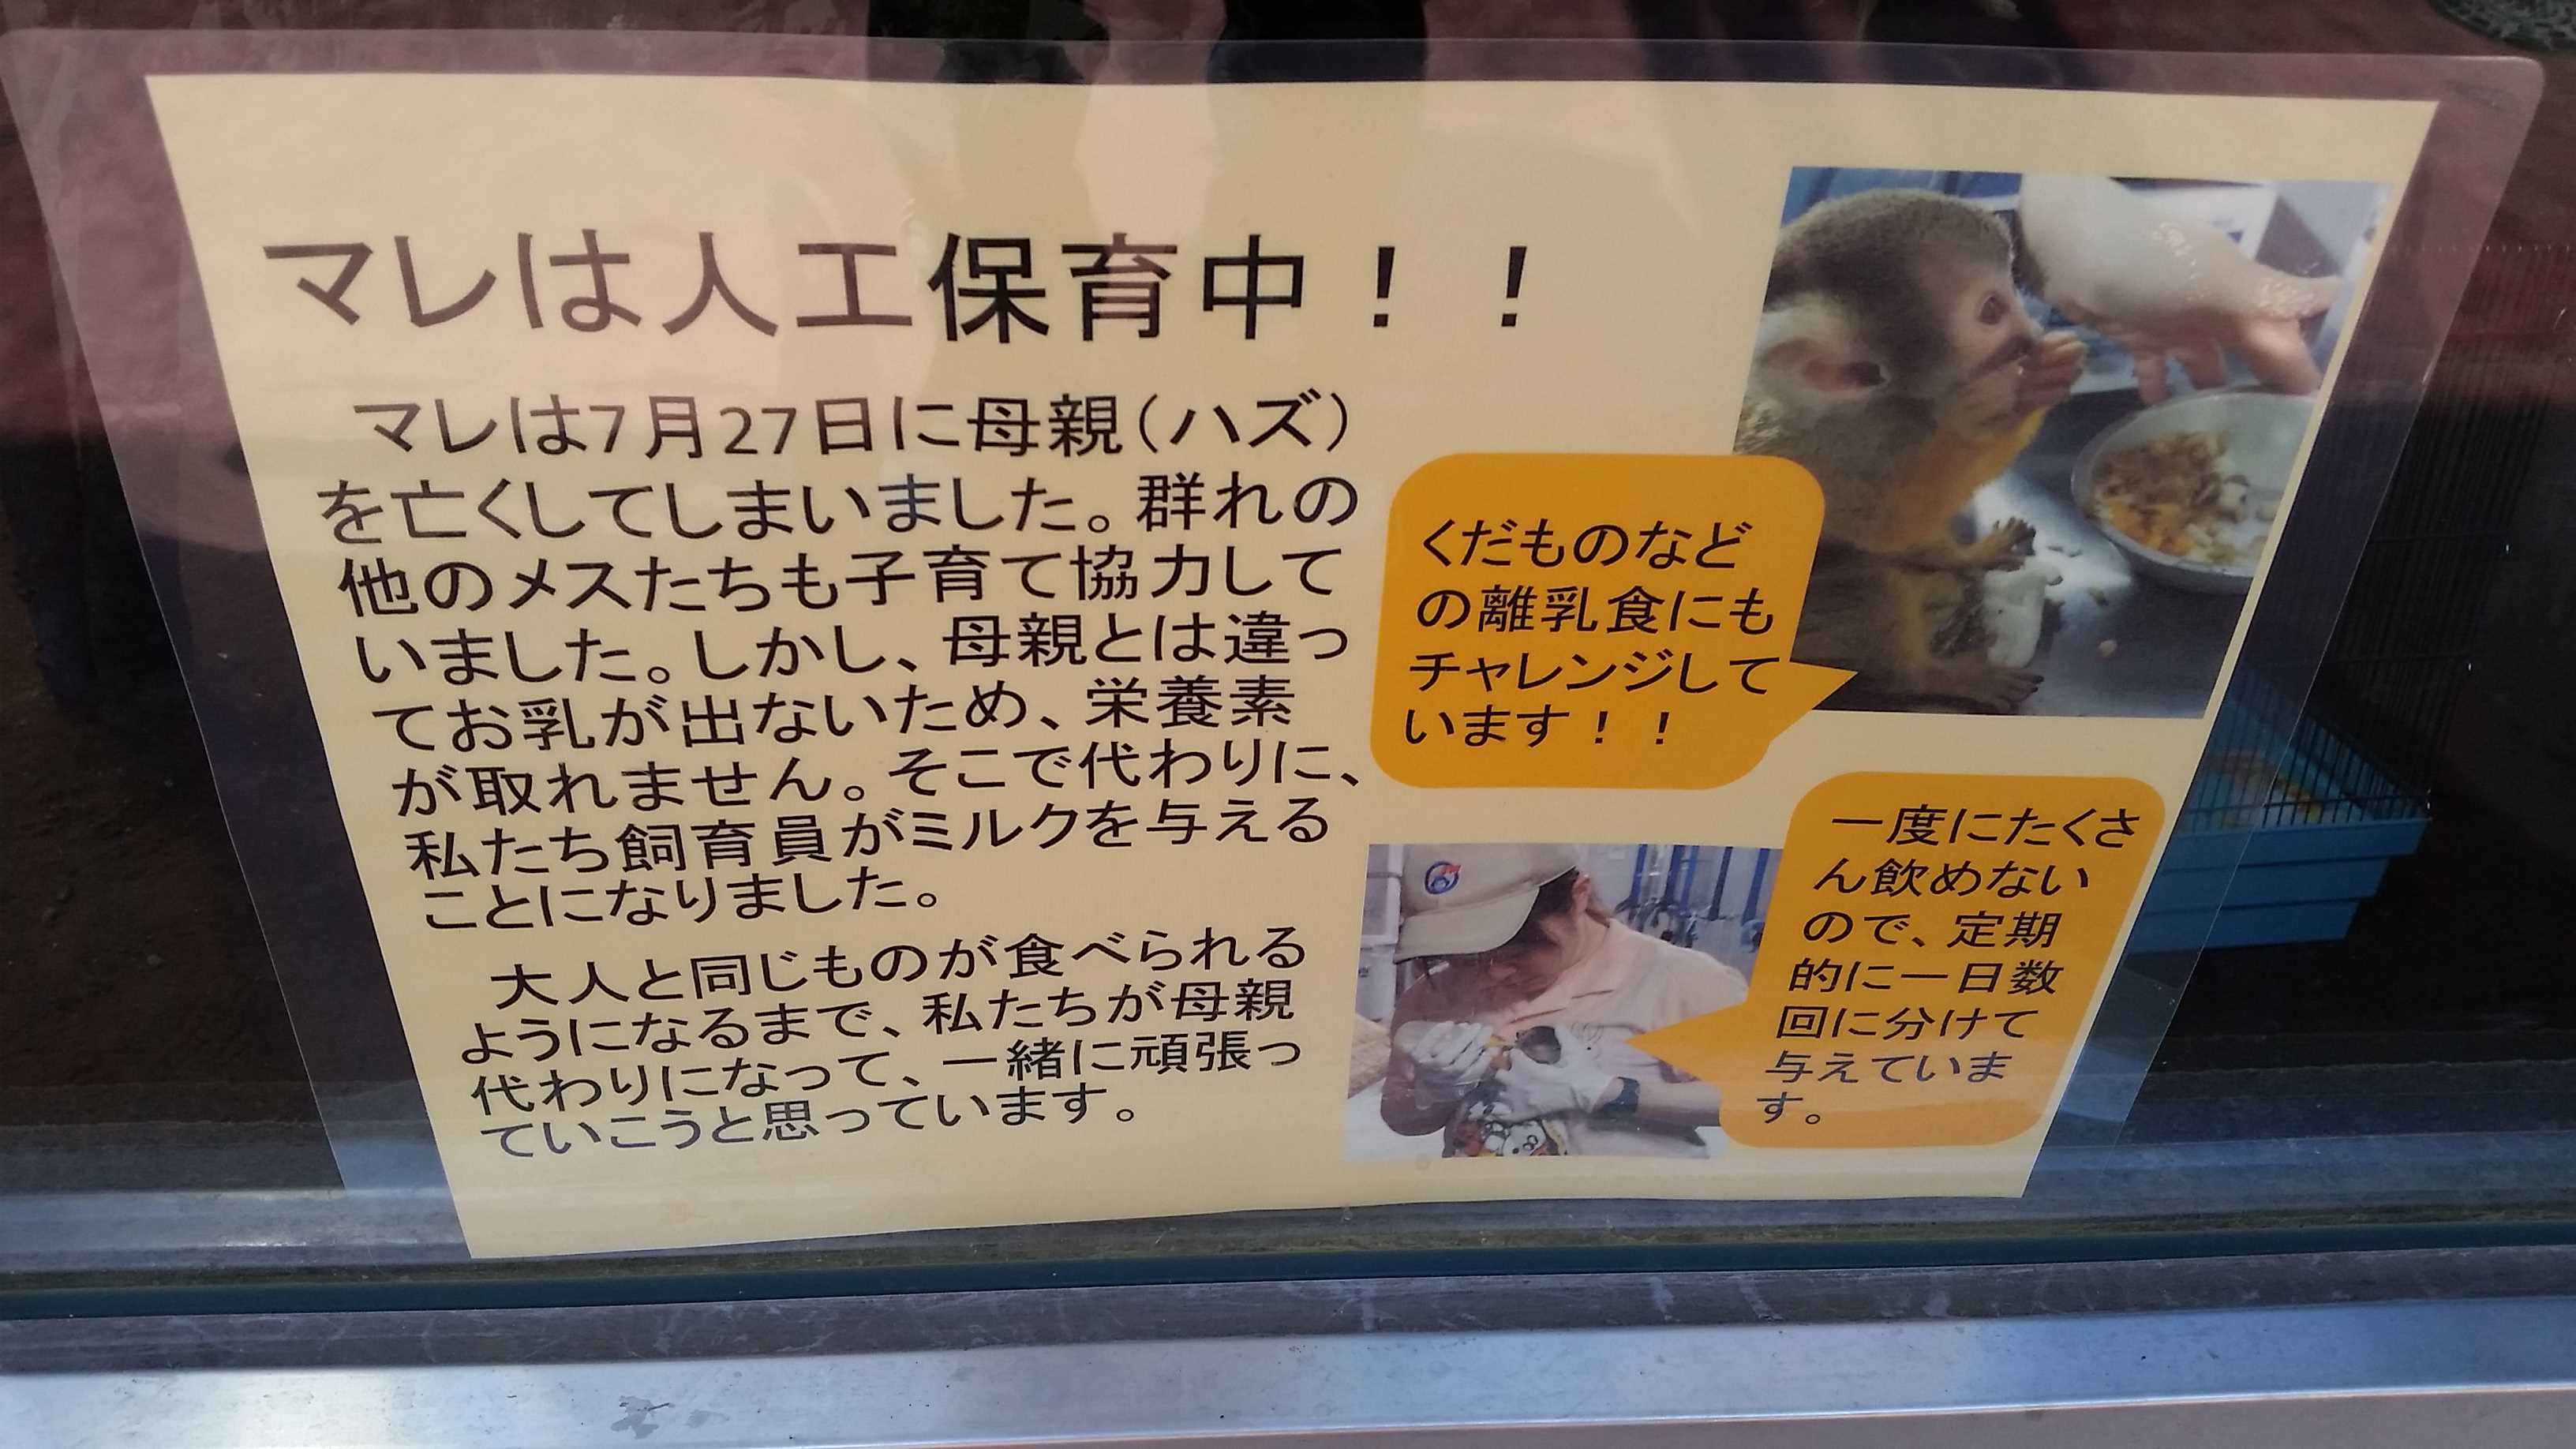 マレは人工保育中！！
マレは7月27日に母親（ハズ）
を亡くしてしまいました。群れの
他のメスたちも子育て協力して
いました。しかし、母親とは違っ
てお乳が出ないため、栄養素
が取れません。そこで代わりに、
私たち飼育員がミルクを与える
ことになりました。
大人と同じものが食べられる
ようになるまで、私たちが母親
代わりになって、一緒に頑張っ
ていこうと思っています。
くだものなど
の離乳食にも
チャレンジして
います！！
一度にたくさ
ん飲めない
ので、定期
的に一日数
回に分けて
与えていま
す。